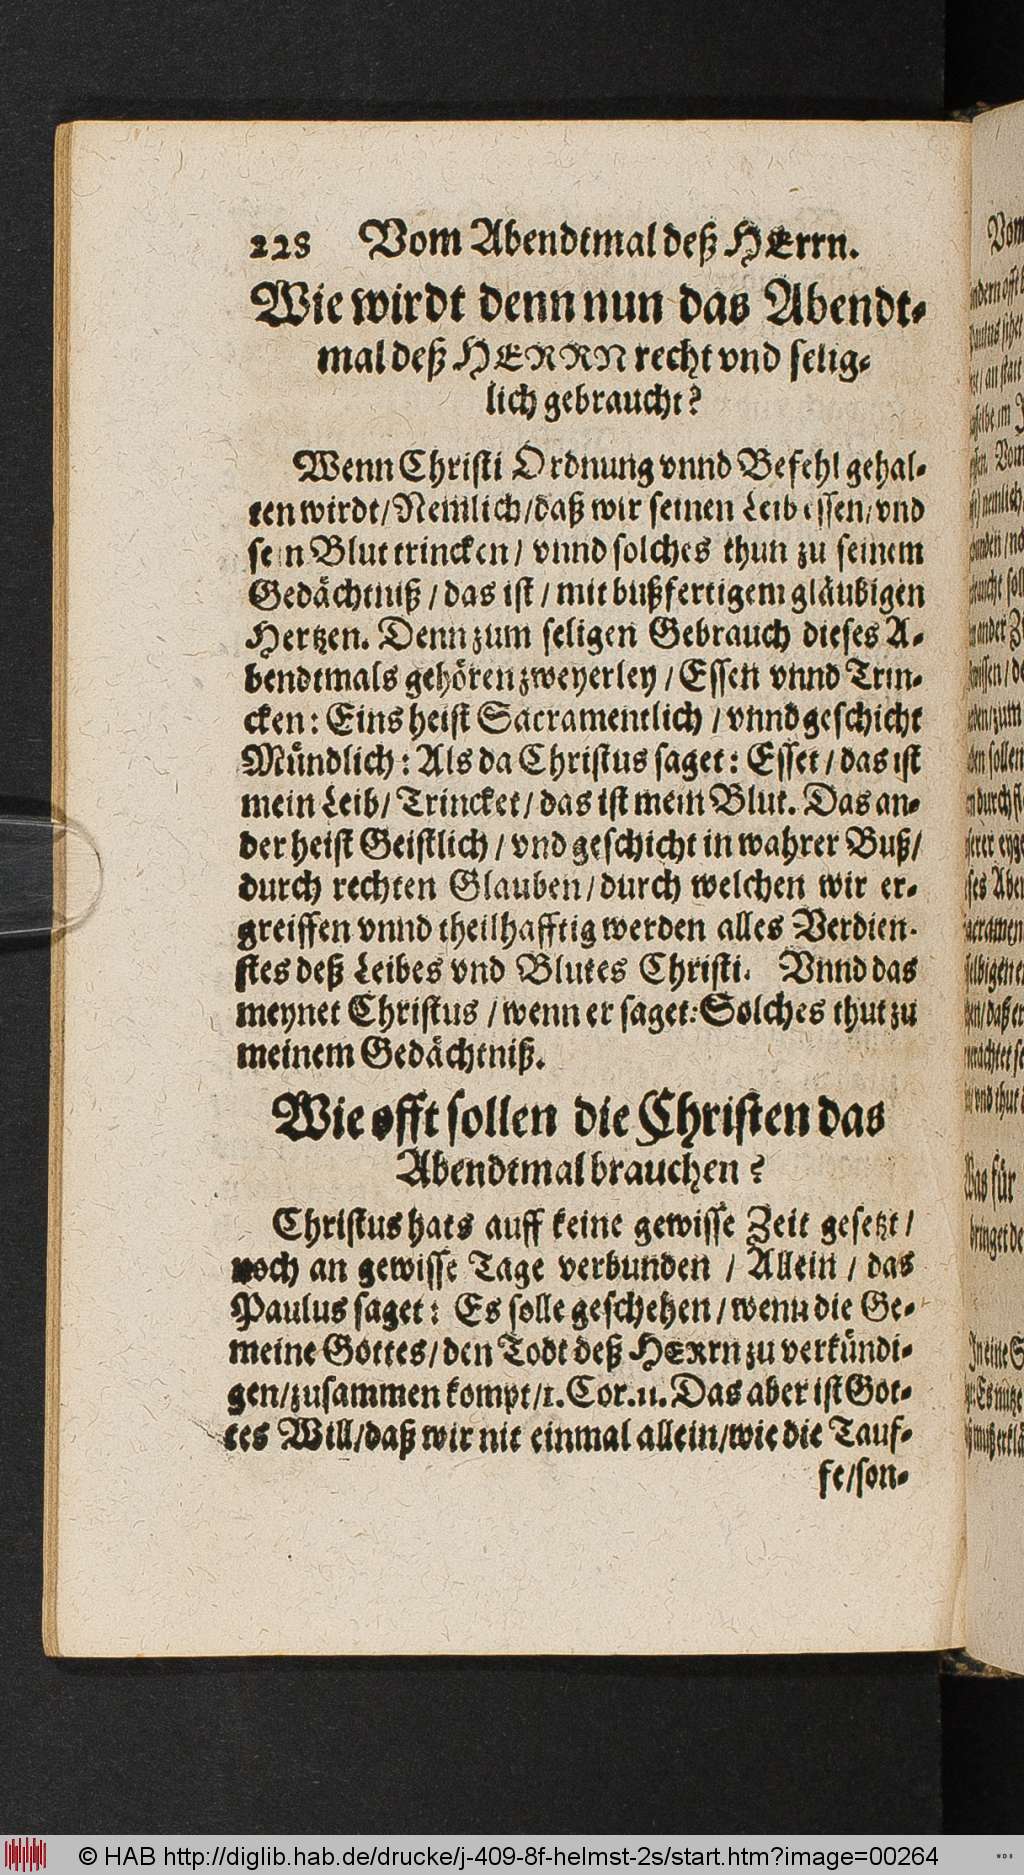 228 Vom Abendtmal deß HErrn.
Wie wirdt denn nun das Abendt-
mal deß HERRN recht vnd selig-
lich gebraucht?
Wenn Christi Ordnung vnnd Befehl gehal-
ten wirdt/Nemlich/daß wir seinen Leib essen/vnd
sein Blut trincken/ vnnd solches thun zu seinem
Gedächtnuß/das ist/mit bußfertigem gläubigen
Hertzen. Denn zum seligen Gebrauch dieses A-
bendtmals gehören zweyerley/Essen vnnd Trin-
cken: Eins heist Sacramentlich/vnnd geschicht
Mündlich: Als da Christus saget: Esset/das ist
mein Leib/Trincket/das ist mein Blut. Das an-
der heist Geistlich/vnd geschicht in wahrer Buß/
durch rechten Glauben/durch welchen wir er-
greiffen vnnd theilhafftig werden alles Verdien-
stes deß Leibes vnd Blutes Christi. Vnnd das
meynet Christus/wenn er saget: Solches thut zu
meinem Gedächtniß.
Wie offt sollen die Christen das
Abendtmal brauchen?
Christus hats auff keine gewisse Zeit gesetzt/
noch an gewisse Tage verbunden/Allein/das
Paulus saget: Es solle geschehen/wenn die Ge-
meine Gottes/den Todt deß HERrn zu verkündi-
gen/zusammen kompt/1.Cor.11. Das aber ist Got-
tes Will/daß wir nit einmal allein/wie die Tauf-
fe/son-
© HAB http://diglib.hab.de/drucke/j-409-8f-helmst-2s/start.htm?image=00264